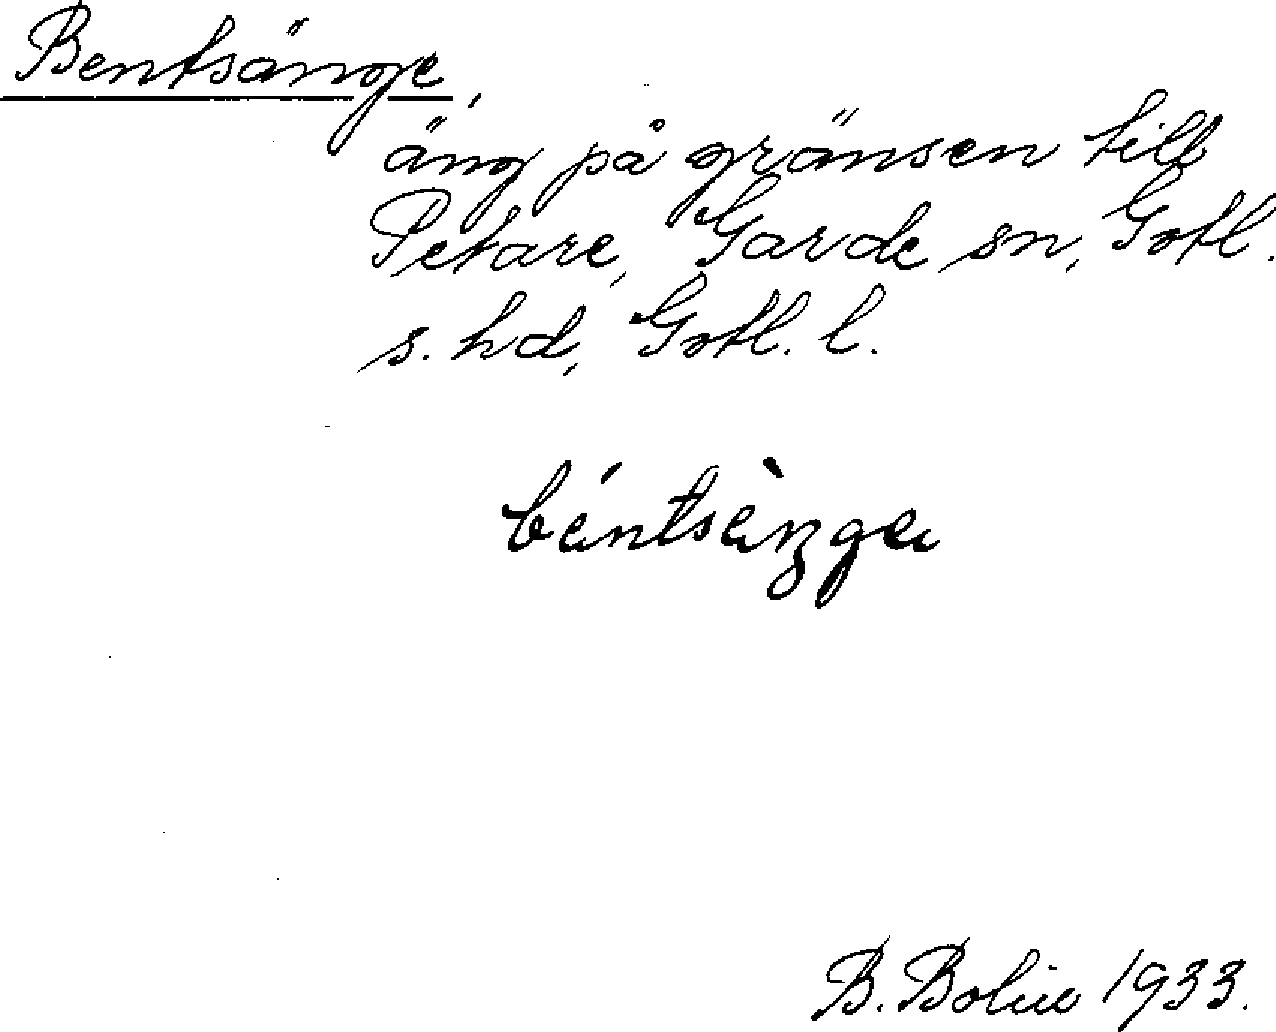 Bentsänge,
äng på gränsen till
Petare, Garde sn, Gotl.
s. hd, Gotl. l.
B. Bolin 1933.